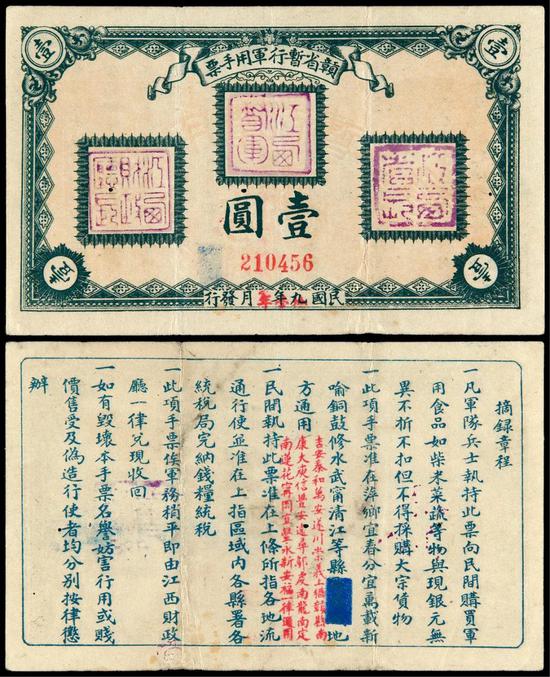 壹
壹
贛省暫行軍用手票
江西督軍
江西財政廳長
壹圓
210456
壹
壹
民國九年月發行
摘錄章程
一凡軍隊兵士執持此票向民間購買軍
用食品如柴米菜蔬等物與現銀元無
異不折不扣但不得採購大宗貨物
一此項手票准在萍鄉宜春分宜萬載新
喻銅鼓修水武甯清江等縣地
方通用
吉安泰和萬安遂川崇義上猶贛縣南
康大庾信豐安遠尋鄔虔南龍南定
南蓮花甯岡宜豐永新安福一律通用
一民間執持此票准在上條所指各地流
通行使並准在上指區域内各縣署各
統稅局完納錢糧統稅
一此項手票俟軍務稍平即由江西財政
廳一律兑現收回
一如有毀壞本手票名譽妨害行用或賤
價售受及偽造行使者均分別按律懲
辦